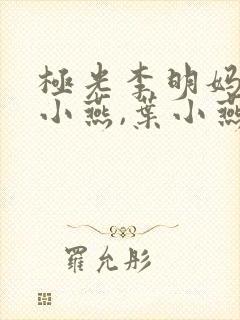 極光李明媽
小燕,葉小燕
羅允彤